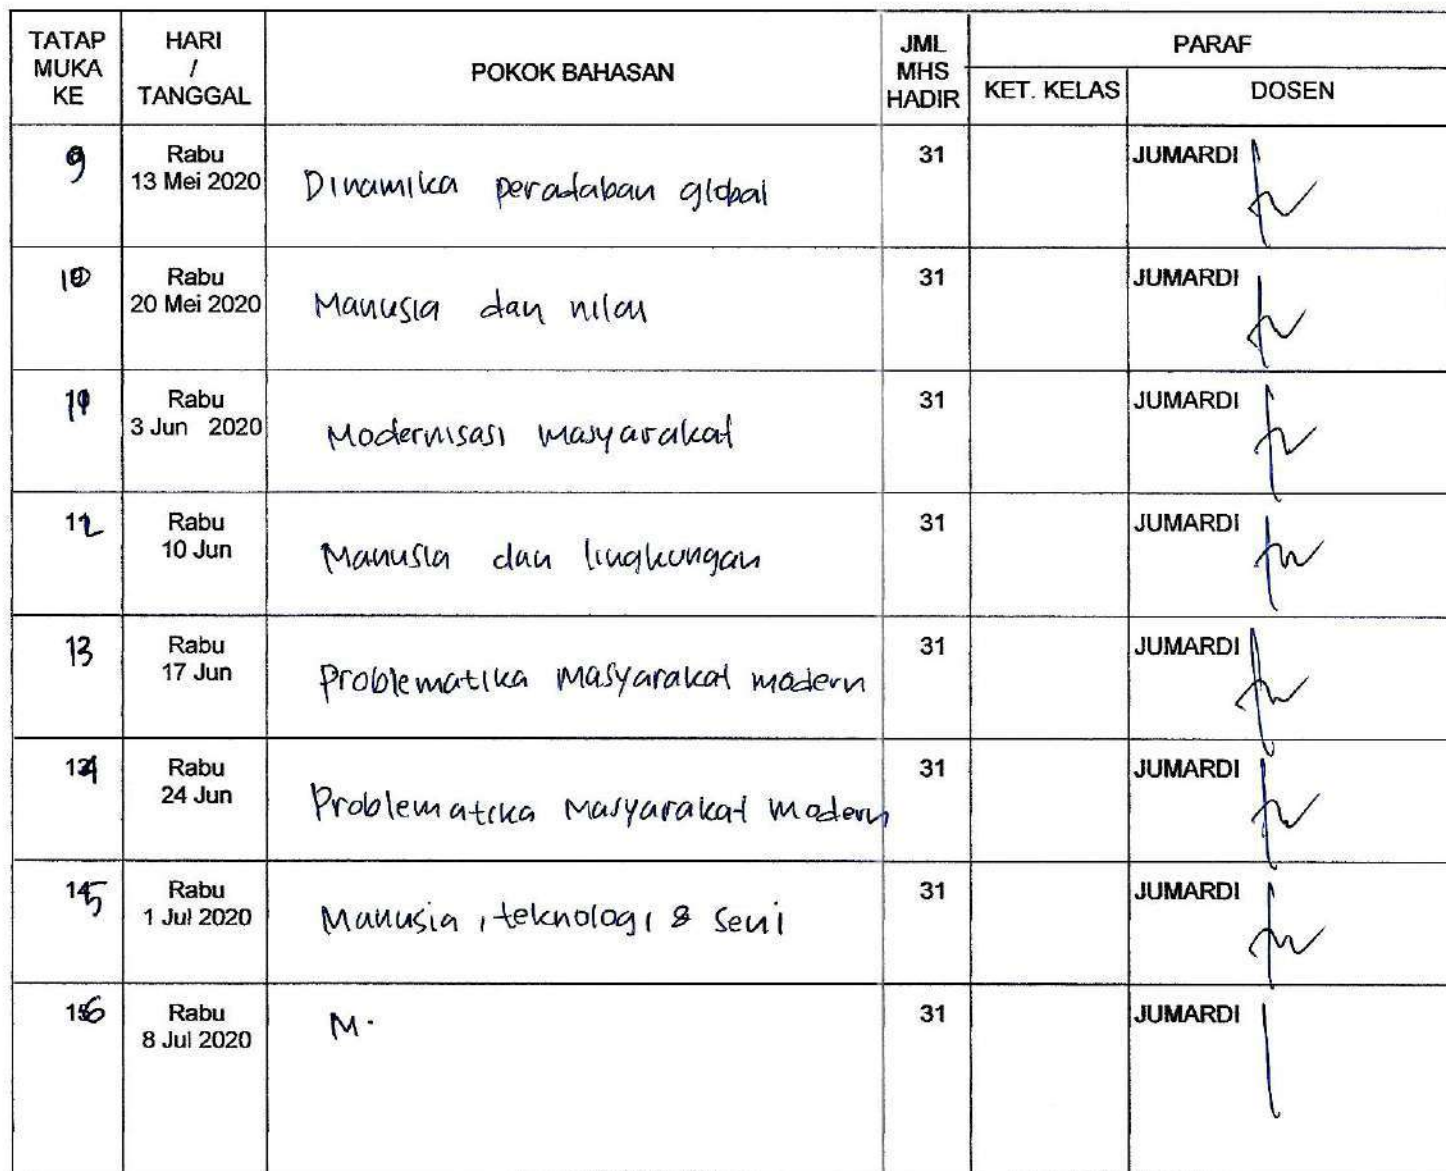 TATAP MUKA KE
HARI / TANGGAL
POKOK BAHASAN
JML MHS HADIR
PARAF
KET. KELAS
DOSEN
9
Rabu
13 Mei 2020
Dinamika peradaban global
31
JUMARDI
10
Rabu
20 Mei 2020
Manusia dan nilai
31
JUMARDI
11
Rabu
3 Jun 2020
Modernisasi masyarakat
31
JUMARDI
12
Rabu
10 Jun
Manusia dan lingkungan
31
JUMARDI
13
Rabu
17 Jun
Problematika Masyarakat modern
31
JUMARDI
14
Rabu
24 Jun
Problematika Masyarakat modern
31
JUMARDI
15
Rabu
1 Jul 2020
Manusia, teknologi & seni
31
JUMARDI
16
Rabu
8 Jul 2020
M.
31
JUMARDI